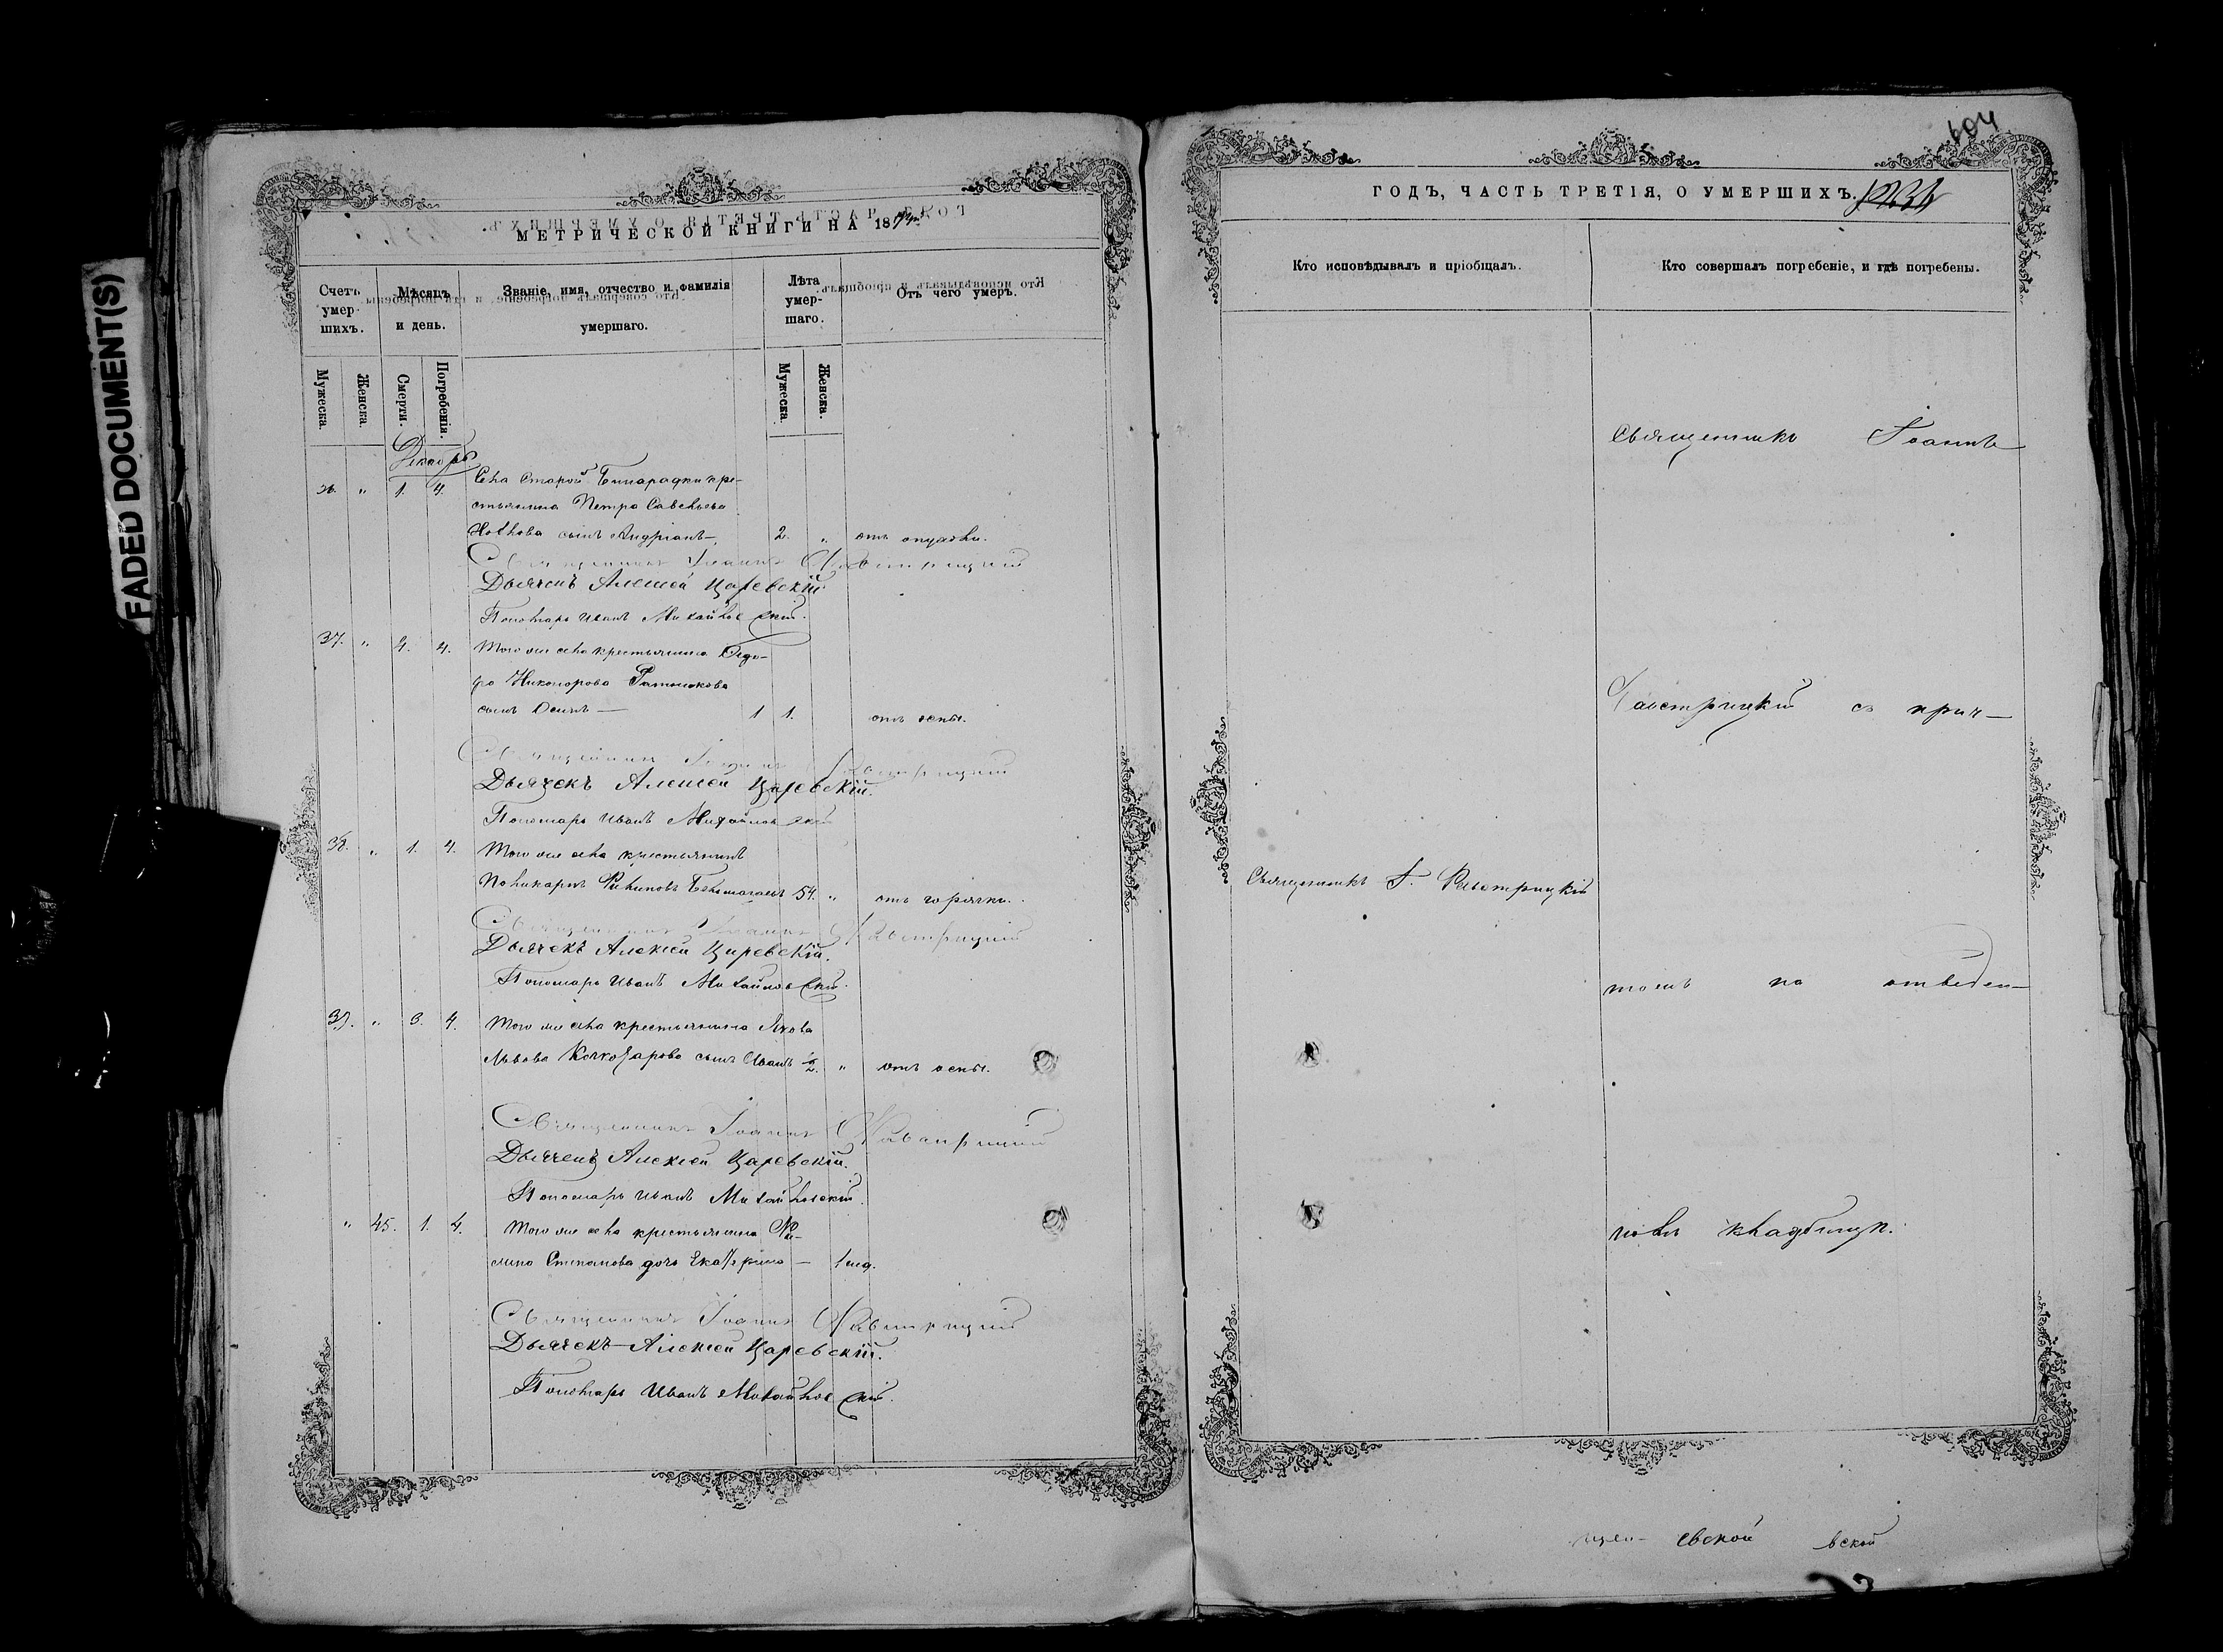 FADED DOCUMENT(S)
МЕТРИЧЕСКОЙ КНИГИ НА 187
Счетъ умершихъ.
Мѣсяцъ и день.
Званіе, имя, отчество и фамилія умершаго.
Лѣта умершаго.
Отъ чего умеръ.
Мужеска.
Женска.
Смерти.
Погребенія.
Мужеска.
Женска.
Декабрь
36. " 1. 4. Села Старой Бинарадки кре-
стьянина Петра Савельева
сынъ Андріанъ — 2. "
Священникъ Іоаннъ
Дьячекъ Алексей Царевскій.
Пономарь Иванъ Михайловскій.
37. " 2. 4. Того же села крестьянина Федо-
ра Никонорова
сынъ Осипъ — 1 отъ оспы.
Священникъ Іоаннъ
Дьячекъ Алексей Царевскій.
Пономарь Иванъ Михайловскій
38. " 1. 4. Того же села крестьянинъ
Поликарпъ Филиповъ 54. " отъ горячки.
Священникъ Іоаннъ
Дьячекъ Алексей Царевскій.
Пономарь Иванъ Михайловскій.
39. " 3. 4. Того же села крестьянина Якова
Львова сынъ Иванъ ½. " отъ оспы.
Священникъ Іоаннъ
Дьячекъ Алексей Царевскій.
Пономарь Иванъ Михайловскій.
" 45. 1. 4. Того же села крестьянина Фи-
липа Степанова дочь Екатерина — 1 нед.
Священникъ Іоаннъ
Дьячекъ Алексей Царевскій.
Пономарь Иванъ Михайловскій.
604
ГОДЪ, ЧАСТЬ ТРЕТІЯ, О УМЕРШИХЪ.
Кто исповѣдывалъ и пріобщалъ.
Кто совершалъ погребеніе, и гдѣ погребены.
Священникъ Іоаннъ
съ прич-
Священникъ І.
томъ на отведен-
номъ кладбищѣ.